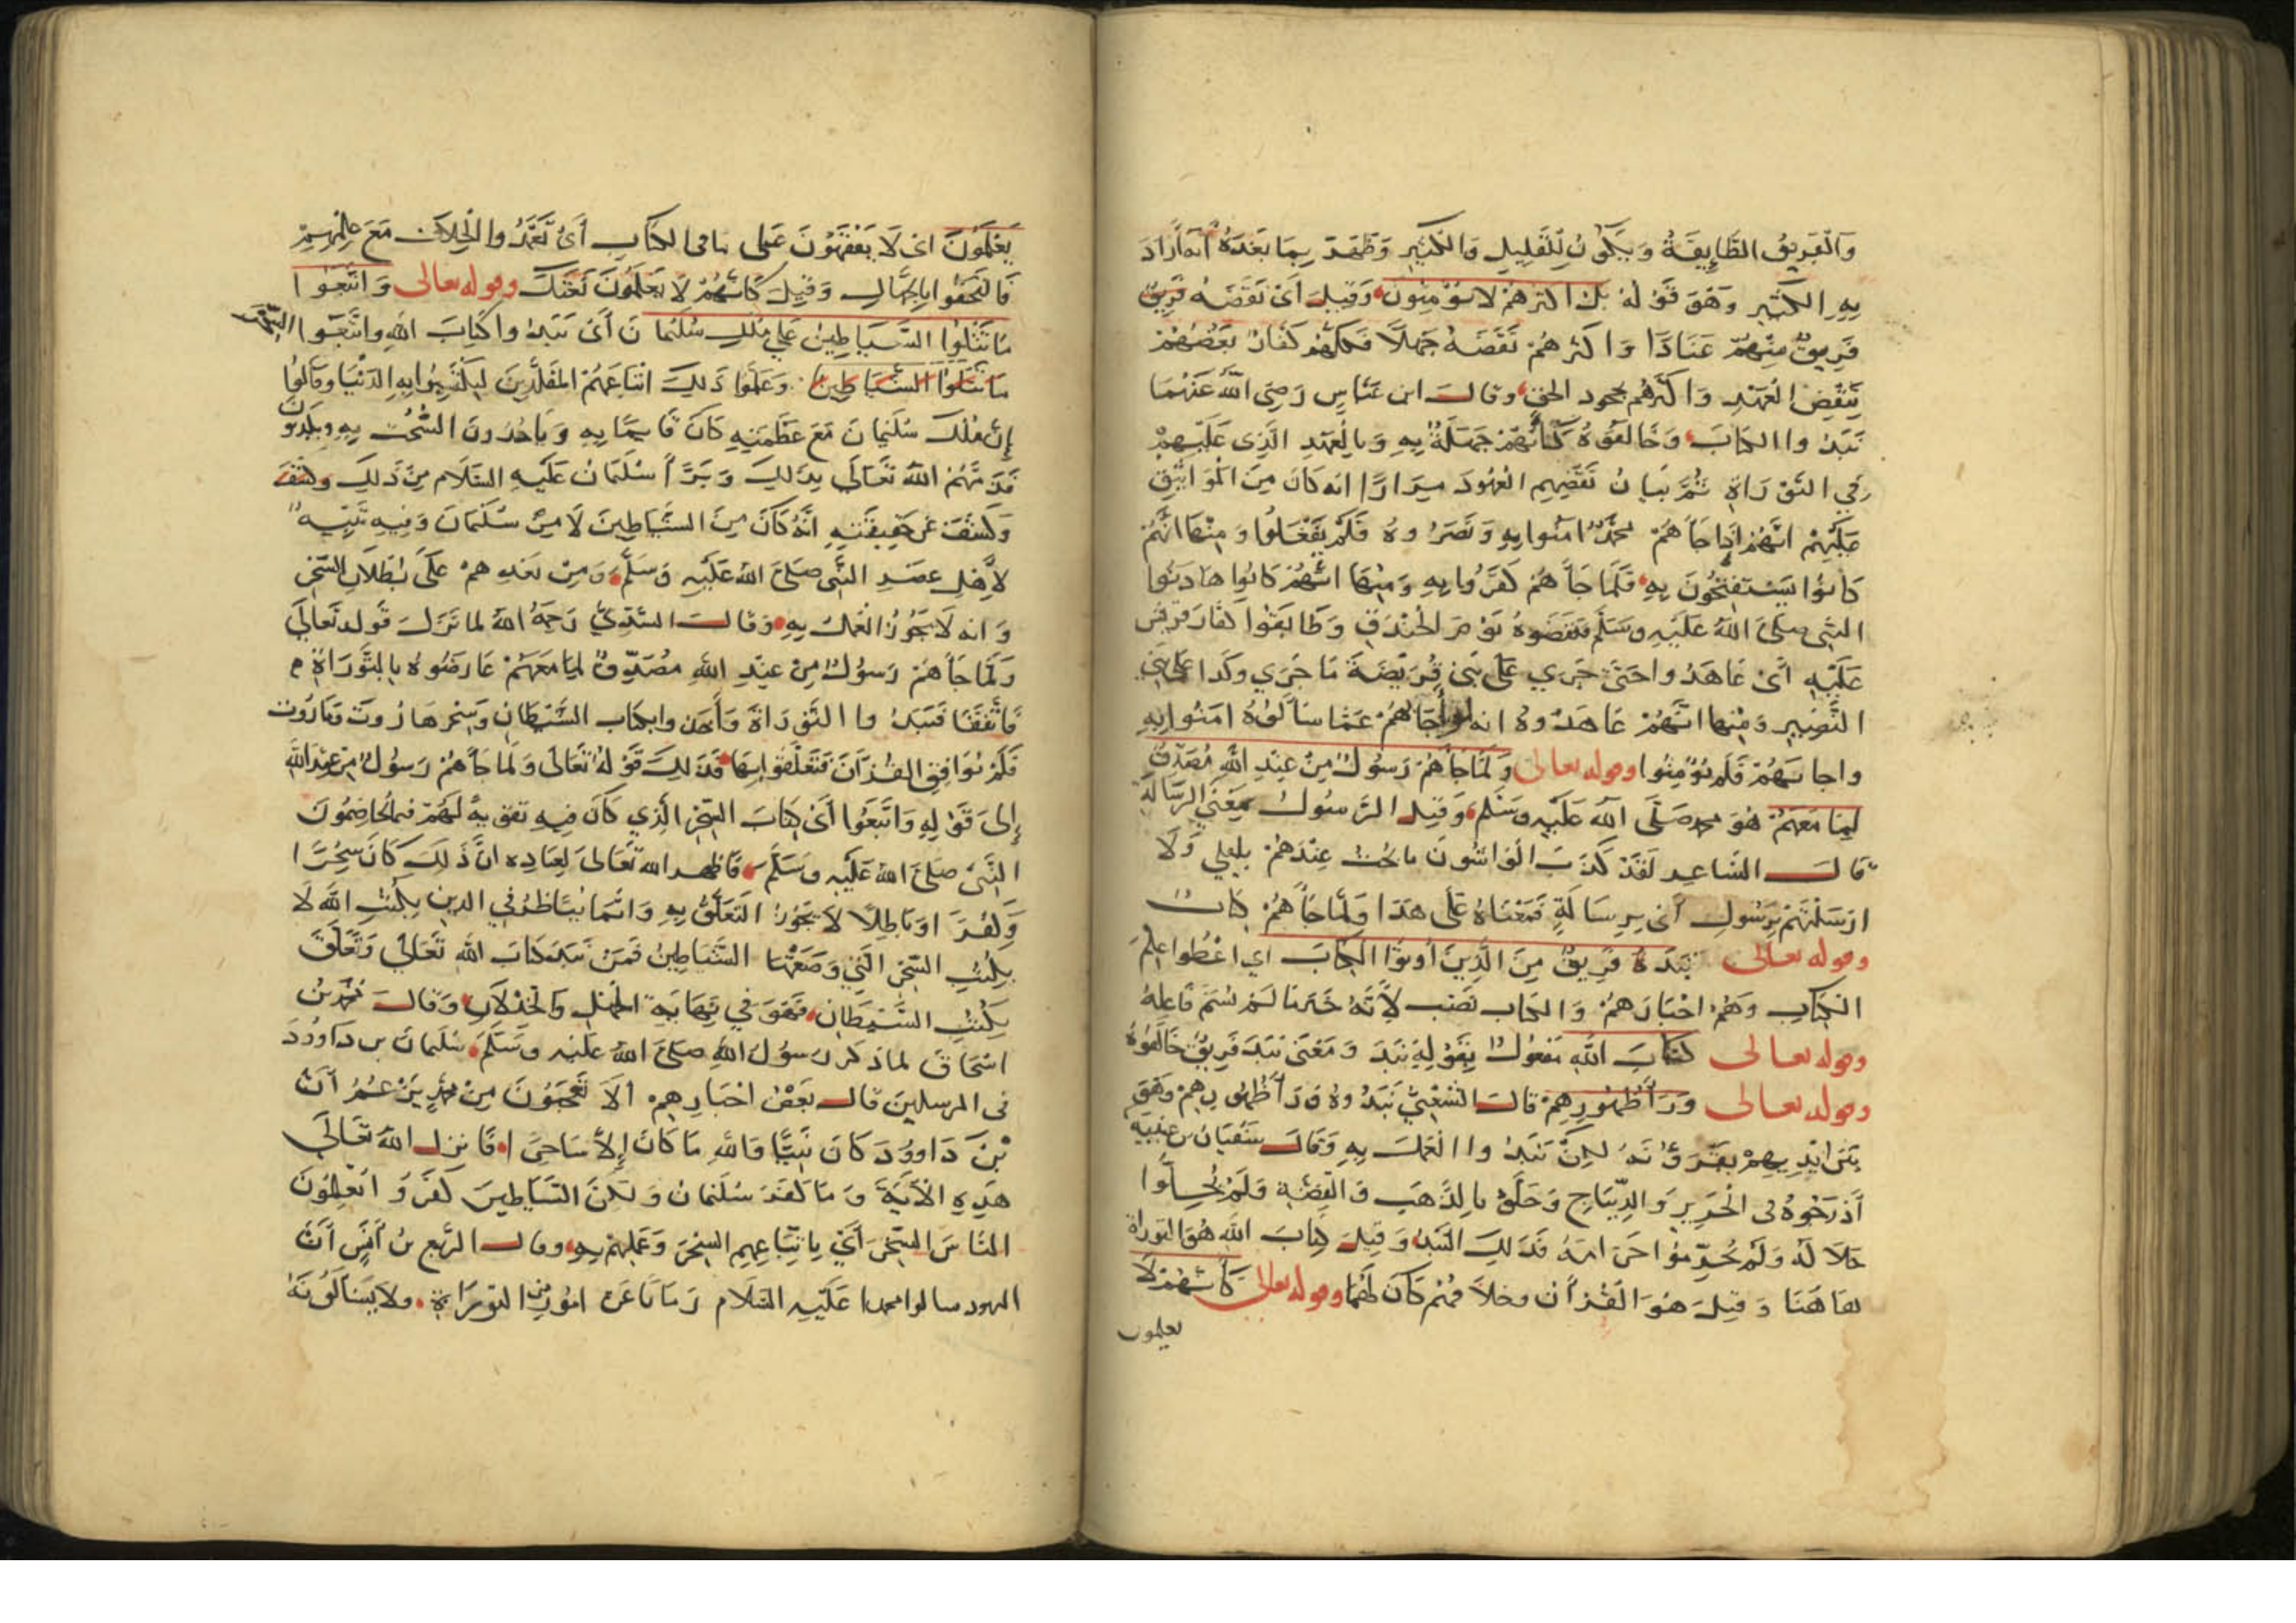 والفريق الطايفة ويكون للقليل والكثير وظهر بما بعده أنه أراد
به الكثير وهو قوله بل اكثرهم لا يؤمنون وقيل أى نقضه فريق
فريق منهم عنادا واكثرهم نقضه جهلا فكلهم كفار بعضهم
بنقض العهد واكثرهم بجحود الحق وقال ابن عباس رضى الله عنهما
نبذوا الكتاب وخالفوه كأنهم جهلة به وبالعهد الذى عليهم
في التوراة ثم بيان نقضهم العهود مرارا انه كان من المواثيق
عليهم انهم اذا جاهم محمد امنوا به ونصروه فلم يفعلوا ومنها انهم
كانوا يستفتحون به فلما جاهم كفروا به ومنها انهم كانوا هادنوا
النبى صلى الله عليه وسلم فنقضوه يوم الخندق وطابقوا كفار قريش
عليه أى عاهدوا حتى جرى على بنى قريضة ما جرى وكذا على بنى
النضير ومنها انهم عاهدوه انه لو اجابهم عما سألوه امنوا به
واجابهم فلم يؤمنوا وقوله تعالى ولما جاهم رسول من عند الله مصدق
لما معهم هو محمد صلى الله عليه وسلم وقيل الرسول بمعنى الرسالة
قال الشاعر لقد كذب الواشون ما بحت عندهم بليلى ولا
ارسلتهم برسول أى برسالة فمعناه على هذا ولما جاهم كتاب
وقوله تعالى نبذه فريق من الذين أوتوا الكتاب اي اعطوا علم
الكتاب وهم احبارهم والكتاب نصب لأنه خبر ما لم يسم فاعله
وقوله تعالى كتاب الله مفعول بقوله نبذ ومعنى نبذ فريق خالفوه
وقوله تعالى ورا ظهورهم قال الشعبي نبذوه ورا ظهورهم وهو
بين ايديهم يقرؤنه لكن نبذوا العمل به وقال سفيان بن عيينه
أدرجوه فى الحرير والديباج وحلوه بالذهب والفضة ولم يحلوا
حلاله ولم يحرموا حرامه فذلك النبذ وقيل كتاب الله هو التوراة
هاهنا وقيل هو القرأن وخلافهم كان لهما وقوله تعالى كأنهم لا
يعلمون
يعلمون اى لا يفقهون على ما فى الكتاب أى تعمدوا الخلاف مع علمهم
فالتحقوا بالجهال وقيل كأنهم لا يعلمون نعتك وقوله تعالى واتبعوا
ما تتلوا الشياطين على ملك سليمان أى نبذوا كتاب الله واتبعوا السحر
ما تتلوا الشياطين وعلموا ذلك اتباعهم المقلدين ليكتسبوا به الدنيا وقالوا
إن ملك سليمان مع عظمته كان قايما به وياخذون السحت به
فذمهم الله تعالى بذلك وبرأ سليمان عليه السلام من ذلك وكشف
وكشف عن حقيقته انه كان من الشياطين لا من سليمان وفيه تنبيه
لأهل عصر النبى صلى الله عليه وسلم ومن بعدهم على بطلان السحر
وانه لا يجوز العمل به وقال السدي رحمه الله لما نزل قوله تعالى
ولما جاهم رسول من عند الله مصدق لما معهم عارضوه بالتوراة
فاتفقا فنبذوا التوراة وأخذوا بكتاب الشيطان وسحر هاروت وماروت
فلم يوافق القرأن فتعلقوا بها فذلك قوله تعالى ولما جاهم رسول من عند الله
إلى قوله واتبعوا أى كتاب السحر الذي كان فيه تقوية لهم فيما يخاصمون
النبى صلى الله عليه وسلم فاظهر الله تعالى لعباده ان ذلك كان سحرا
وكفرا وباطلا لا يجوز التعلق به وانما يناظر في الدين بكتب الله لا
بكتب السحر التي وضعتها الشياطين فمن نبذ كتاب الله تعالى وتعلق
بكتب الشيطان فهو في نهاية الجهل والخذلان وقال محمد بن
اسحاق لما ذكر رسول الله صلى الله عليه وسلم سليمان بن داوود
فى المرسلين قال بعض احبارهم ألا تعجبون من محمد يزعم أن
بن داوود كان نبيا والله ما كان إلا ساحرا فانزل الله تعالى
هذه الاية وما كفر سليمان ولكن الشياطين كفروا يعلمون
الناس السحر أي باتباعهم السحر وعملهم به وقال الربيع بن أنس أن
اليهود سالوا محمدا عليه السلام زمانا عن امور من التوراة ولا يسألونه